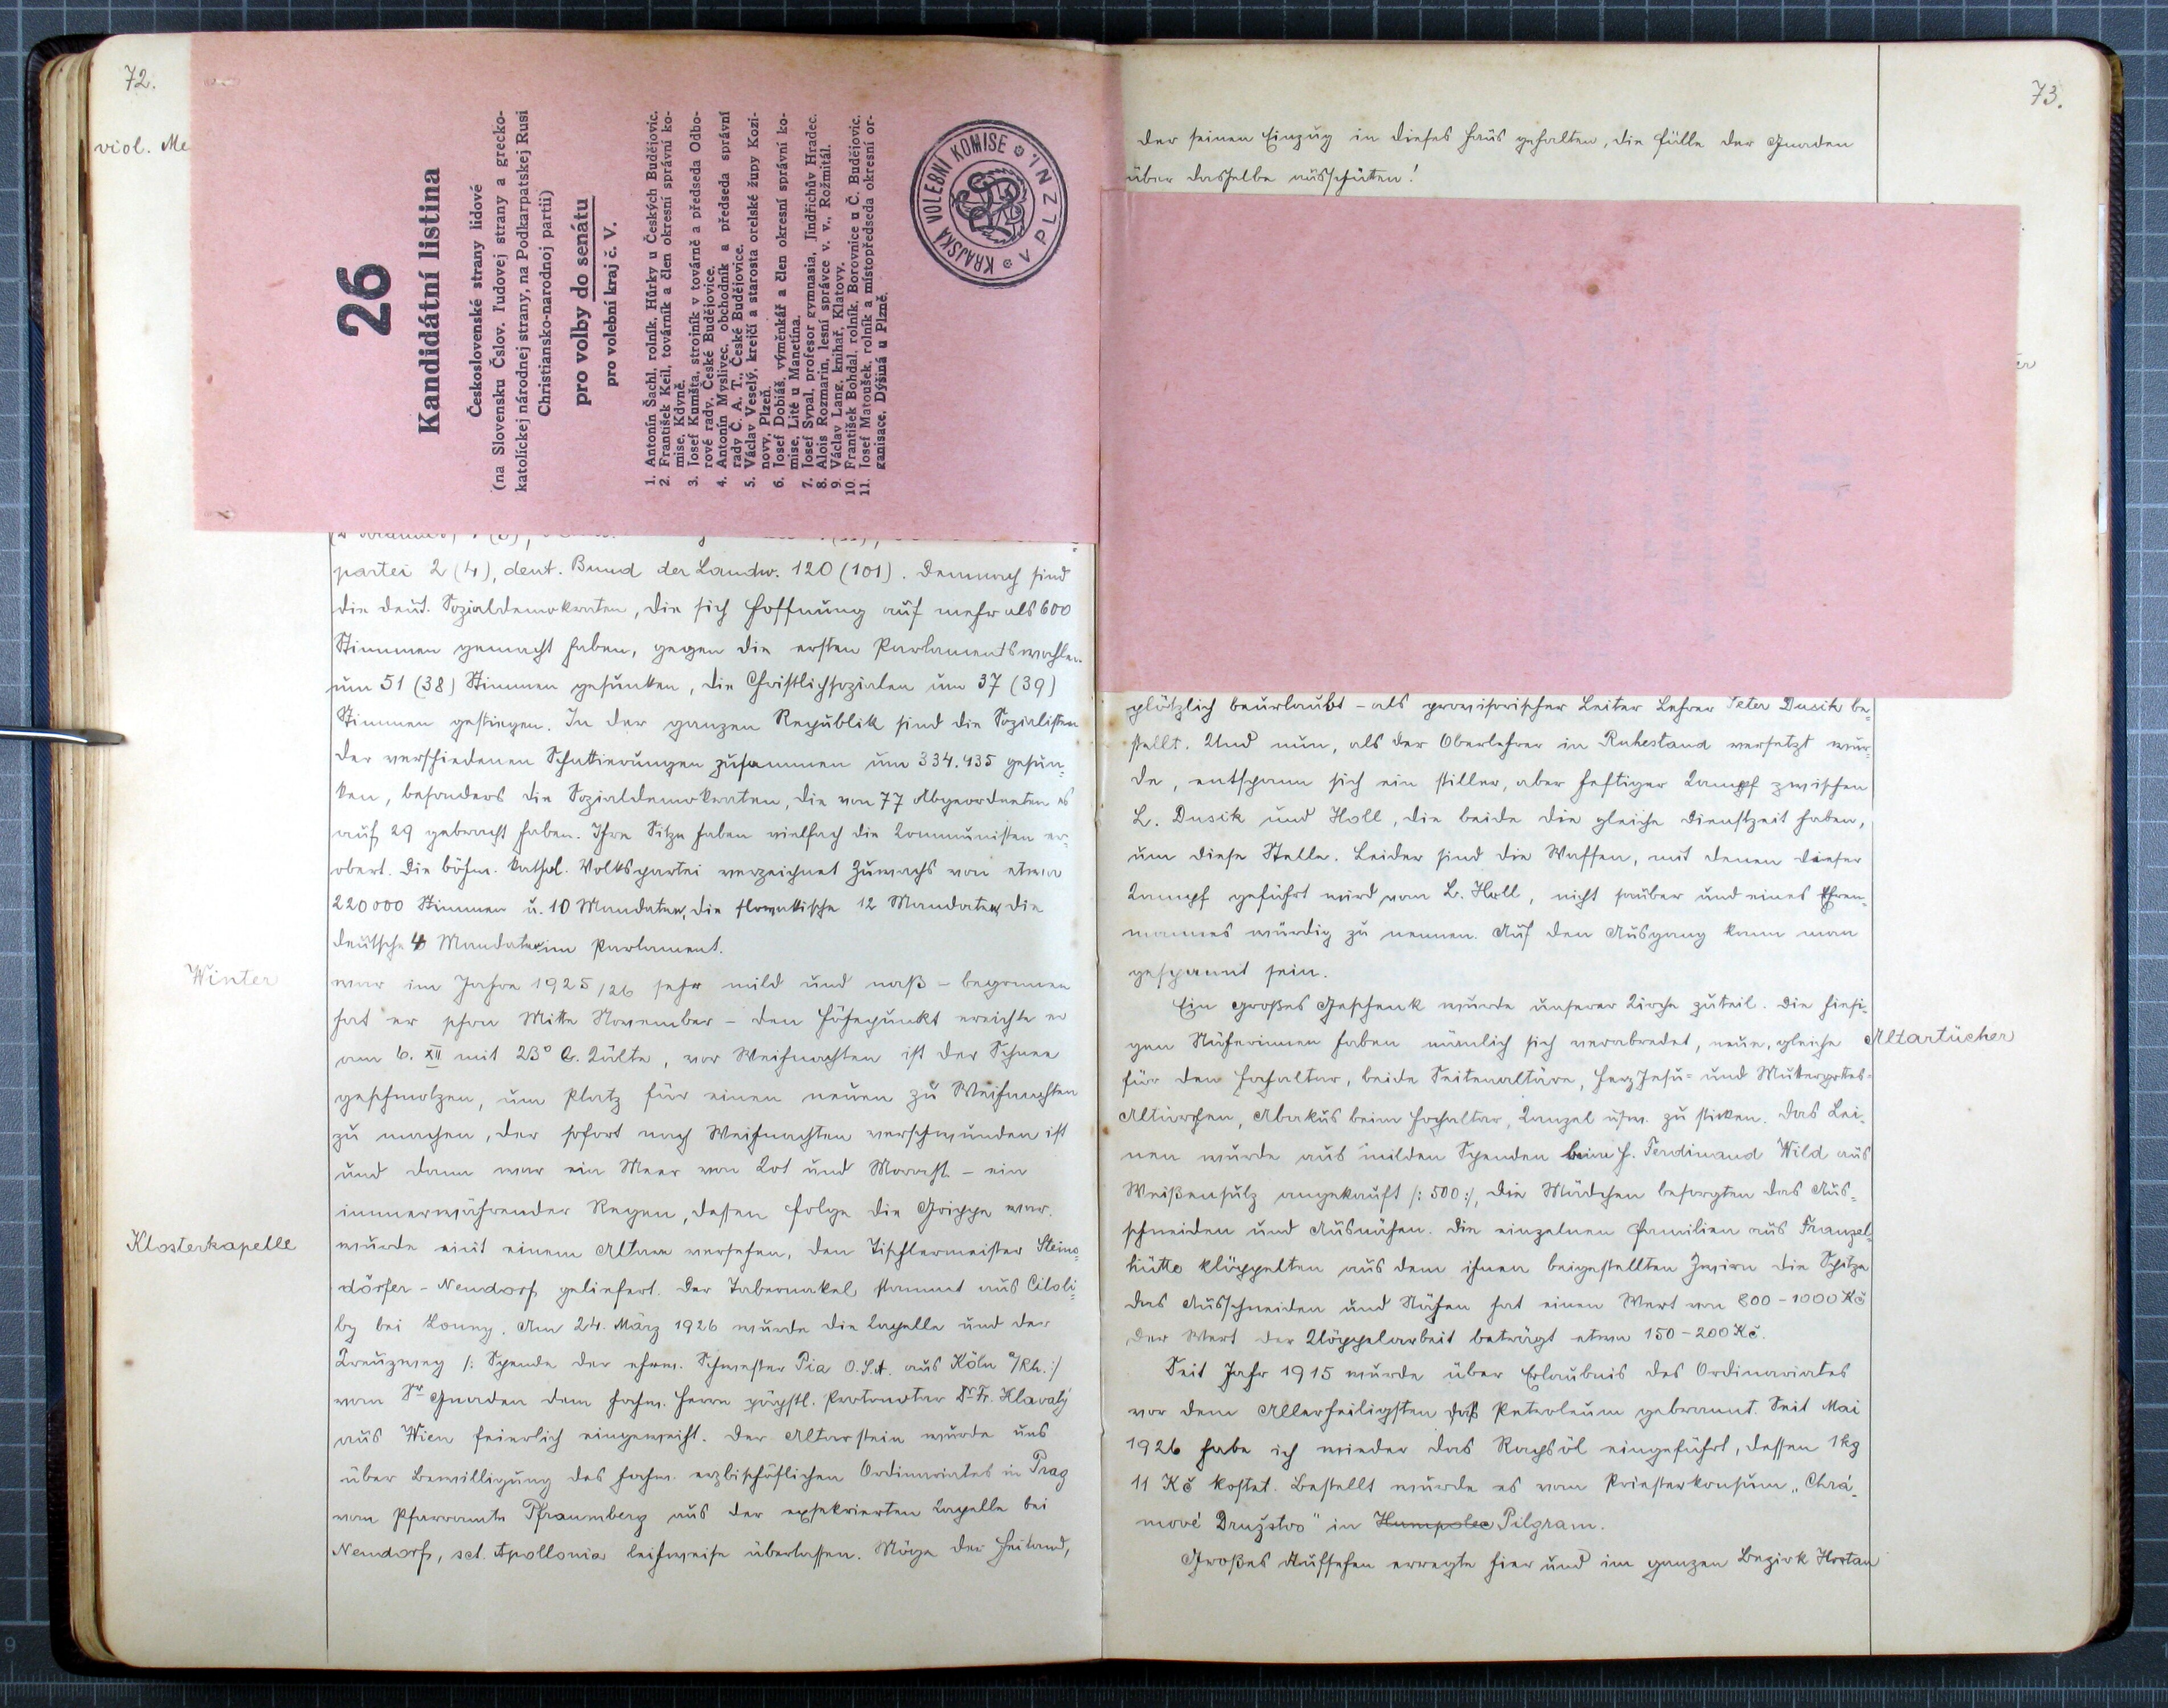 72.
viol. Me
26
Kandidátní listina
Československé strany lidové
(na Slovensku Čslov. ľudovej strany a grecko-
katolíckej národnej strany, na Podkarpatskej Rusi
Christiansko-narodnoj partii)
pro volby do senátu
pro volební kraj č. V.
1. Antonín Šachl, rolník, Hůrky u Českých Budějovic.
2. František Keil, továrník a člen okresní správní ko-
mise, Kdyně.
3. Josef Kumšta, strojník v továrně a předseda Odbo-
rové rady, České Budějovice.
4. Antonín Myslivec, obchodník a předseda správní
rady Č. A. T., České Budějovice.
5. Václav Veselý, krejčí a starosta orelské župy Kozi-
novy, Plzeň.
6. Josef Dobiáš, výměnkář a člen okresní správní ko-
mise, Lité u Manetína.
7. Josef Sypal, profesor gymnasia, Jindřichův Hradec.
8. Alois Rozmarin, lesní správce v. v., Rožmitál.
9. Václav Lang, knihař, Klatovy.
10. František Bohdal, rolník, Borovnice u Č. Budějovic.
11. Josef Matoušek, rolník a místopředseda okresní or-
ganisace, Dýšina u Plzně.
KRAJSKÁ VOLEBNÍ KOMISE V PLZNI.
partei 2 (4), deut. Bund der Landw. 120 (101). Demnach sind
die deut. Sozialdemokraten, die sich Hoffnung auf mehr als 600
Stimmen gemacht haben, gegen die ersten Parlamentswahlen
um 51 (38) Stimmen gesunken, die Christlichsozialen um 37 (39)
Stimmen gestiegen. In der ganzen Republik sind die Sozialisten
der verschiedenen Schattierungen zusammen um 334.435 gesun-
ken, besonders die Sozialdemokraten, die von 77 Abgeordneten es
auf 29 gebracht haben. Ihre Sitze haben vielfach die Kommunisten er-
obert. Die böhm. kathol. Volkspartei verzeichnet Zuwachs von etwa
220000 Stimmen u. 10 Mandaten, die slowakische 12 Mandaten, die
deutsche 4 Mandaten im Parlament.
Winter
war im Jahre 1925/26 sehr mild und naß – begonnen
hat er schon Mitte November – den Höhepunkt ereichte er
am 6. XII mit 23° C. Kälte, vor Weihnachten ist der Schnee
geschmolzen, um Platz für einen neuen zu Weihnachten
zu machen, der sofort nach Weihnachten verschwunden ist
und dann war ein Meer von Kot und Morast – ein
immerwährender Regen, dessen Folge die Grippe war.
Klosterkapelle
wurde mit einem Altare versehen, den Tischlermeister Steins-
dörfer-Neudorf geliefert. Der Tabernakel stammt aus Citoli-
by bei Louny. Am 24. März 1926 wurde die Kapelle und der
Kreuzweg /: Spende der ehrw. Schwester Pia O.S.A. aus Köln a/Rh. :/
von Sr Gnaden dem hochw. Herrn päpstl. Protonotar Dr Fr. Hlavatý
aus Wien feierlich eingeweiht. Der Altarstein wurde uns
über Bewilligung des hochw. erzbischöflichen Ordinariates in Prag
vom Pfarramte Pfraumberg aus der exsekrierten Kapelle bei
Neudorf, sct. Apollonia leihweise überlassen. Möge der Heiland,
73.
der seinen Einzug in dieses Haus gehalten, die Fülle der Gnaden
über dasselbe ausschütten!
plötzlich beurlaubt – als provisorischer Leiter Lehrer Peter Dusik be-
stellt. Und nun, als der Oberlehrer in Ruhestand versetzt wur-
de, entspann sich ein stiller, aber heftiger Kampf zwischen
L. Dusik und Holl, die beide die gleiche Dienstzeit haben,
um diese Stelle. Leider sind die Waffen, mit denen dieser
Kampf geführt wird vom L. Holl, nicht sauber und eines Ehren-
mannes würdig zu nennen. Auf den Ausgang kann man
gespannt sein.
Ein großes Geschenk wurde unserer Kirche zuteil. Die hiesi-
gen Näherinnen haben nämlich sich verabredet, neue, gleiche
Altartücher
für den Hochaltar, beide Seitenaltäre, Herz Jesu- und Muttergottes-
Altärchen, Abakus beim Hochaltar, Kanzel usw. zu sticken. Das Lei-
nen wurde aus milden Spenden beim H. Ferdinand Wild aus
Weißensulz angekauft /: 500 :/, die Mädchen besorgten das Aus-
schneiden und Ausnähen. Die einzelnen Familien aus Franzel-
hütte klöppelten aus dem ihnen beigestellten Zwirn die Spitze
das Ausschneiden und Nähen hat einen Wert von 800–1000 Kč
der Wert der Klöppelarbeit beträgt etwa 150–200 Kč.
Seit Jahr 1915 wurde über Erlaubnis des Ordinariates
vor dem Allerheiligsten das Petroleum gebrannt. Seit Mai
1926 habe ich wieder das Rapsöl eingeführt, dessen 1 kg
11 Kč kostet. Bestellt wurde es vom Priesterkonsum „Chrá-
mové Družstvo" in Humpolec Pilgram.
Großes Aufsehen erregte hier und im ganzen Bezirk Hostau